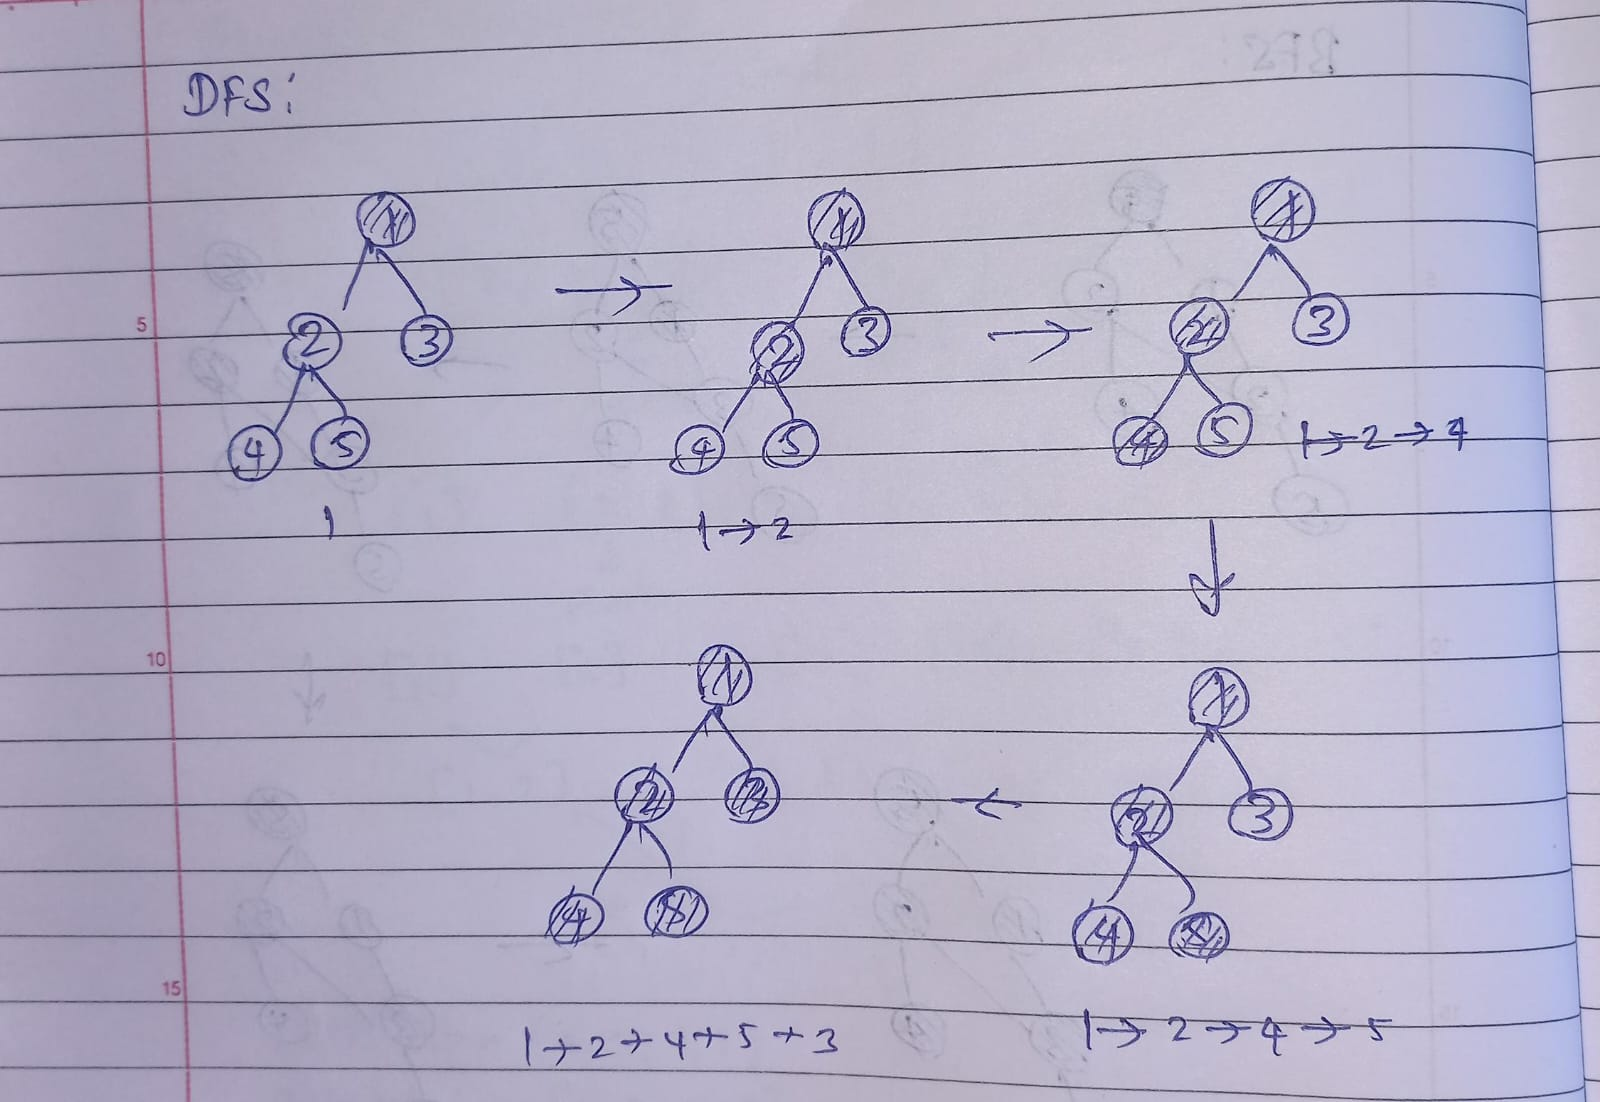 DFS:
1
2 3
4 5
1
1
2 3
4 5
1→2
1
2 3
4 5
1→2→4
1
2 3
4 5
1→2→4→5
1
2 3
4 5
1→2→4→5→3
5
10
15